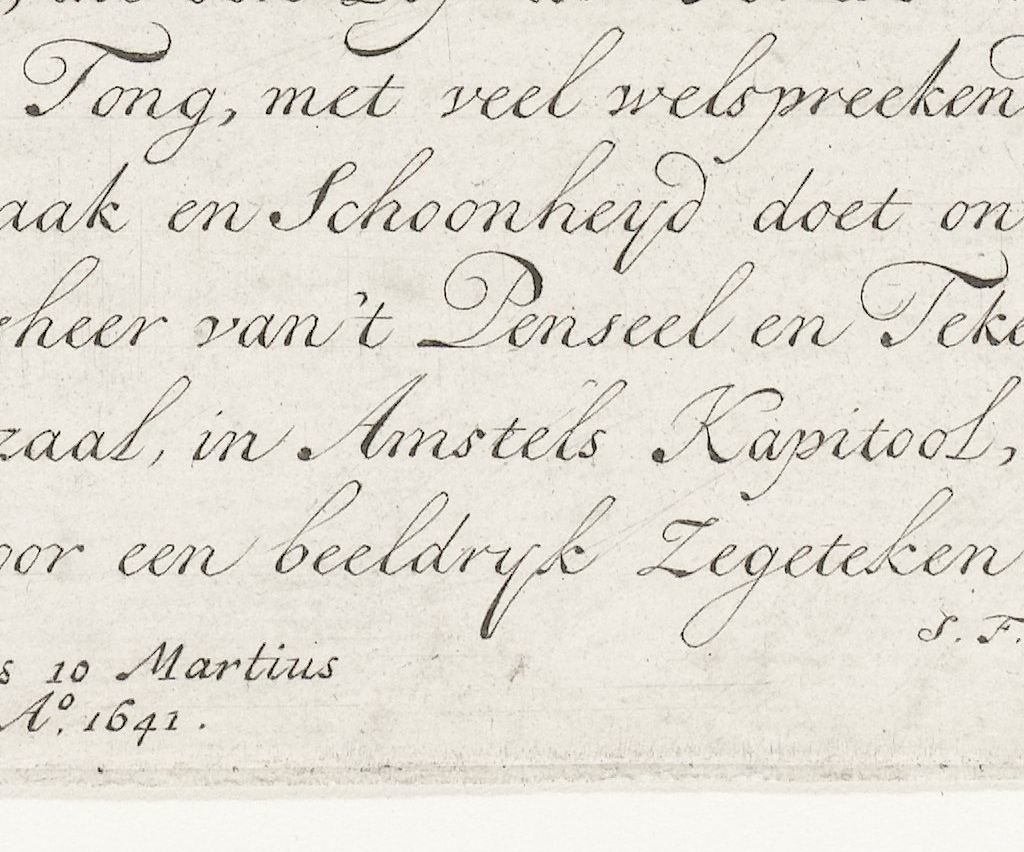 Tong, met veel welspreeken
aak en Schoonheyd doet on
heer van't Penseel en Teke
zaal, in Amstels Kapitool,
oor een beeldryk Zegeteken
S. F.
s 10 Martius
A°. 1641.